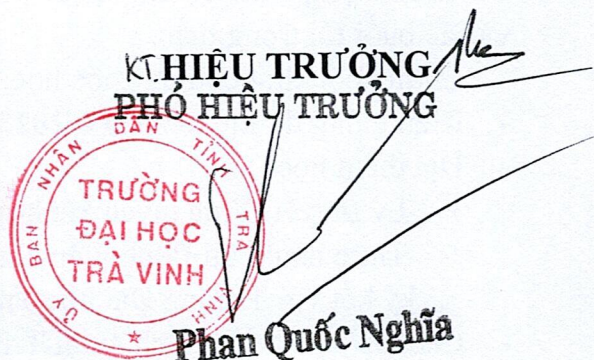 KT.HIỆU TRƯỞNG
PHÓ HIỆU TRƯỞNG
ỦY BAN NHÂN DÂN TỈNH TRÀ VINH
TRƯỜNG
ĐẠI HỌC
TRÀ VINH
Phan Quốc Nghĩa